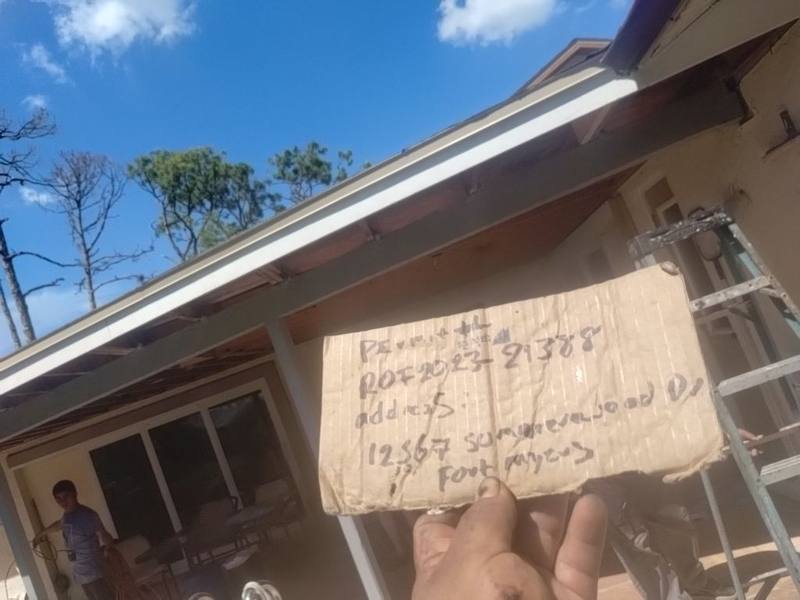 Permit #
ROF2023-21388
address:
12567 Summerwood Dr
Fort Myers